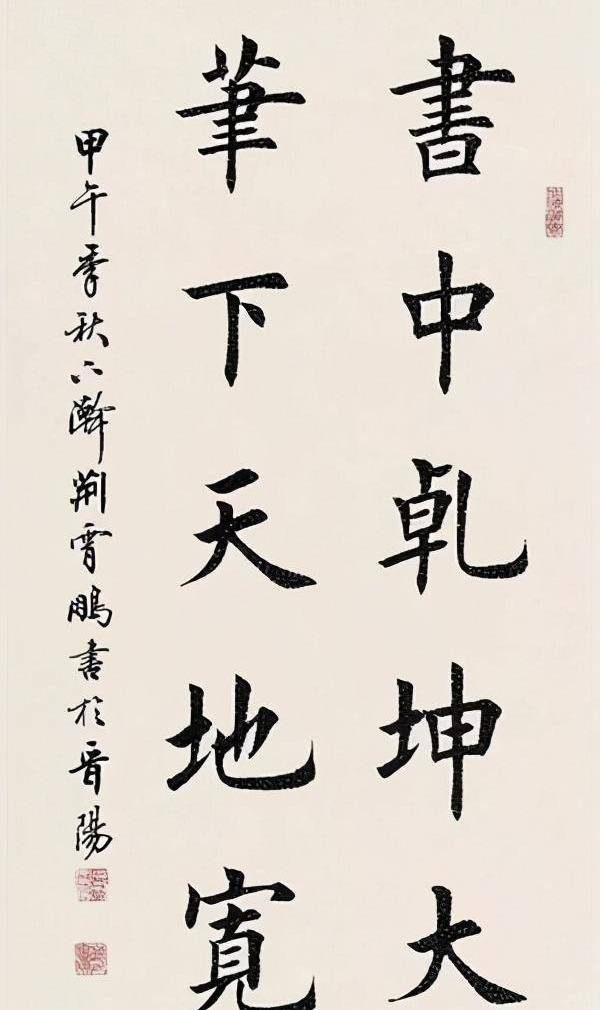 書中乹坤大
筆下天地寬
甲午季秋六澣荆霄鵬書於晋陽